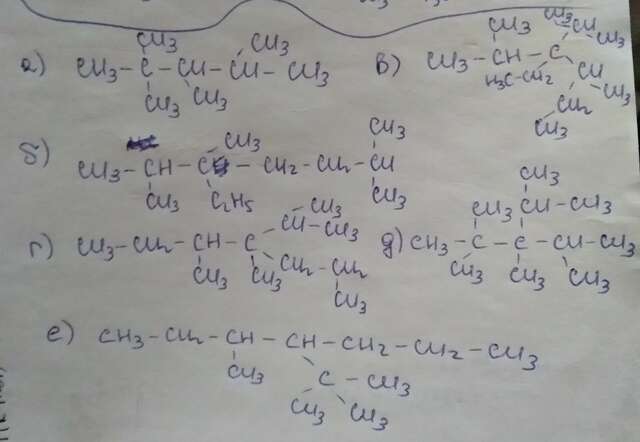 а)
CH3
CH3
CH3 - C - CH - CH - CH3
CH3
CH3
в)
CH3
CH3
CH
CH3
CH3 - CH - C
H3C - CH2
CH
CH3
CH2
CH3
б)
CH3
CH3
CH3 - CH - C - CH2 - CH2 - CH
CH3
C2H5
CH3
г)
CH3
CH - CH3
CH3 - CH2 - CH - C
CH3
CH3
CH2 - CH2
CH3
д)
CH3
CH3
CH - CH3
CH3 - C - C - CH - CH3
CH3
CH3
CH3
е)
CH3 - CH2 - CH - CH - CH2 - CH2 - CH3
CH3
C - CH3
CH3
CH3